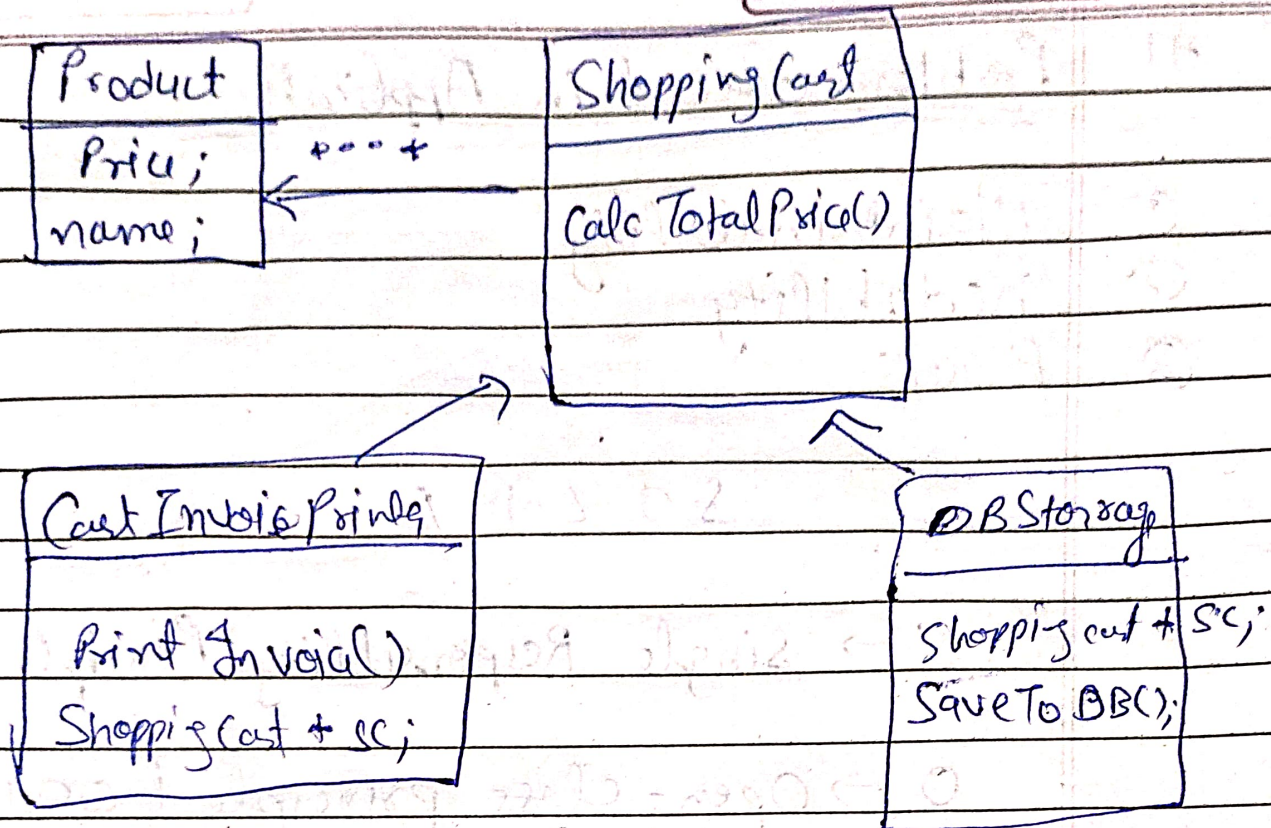 Product
Price;
name;
*...*
Shopping Cart
Calc Total Price()
Cart Invoice Printer
Print Invoice()
Shopping Cart * sc;
DB Storage
Shopping cart * sc;
Save To DB();